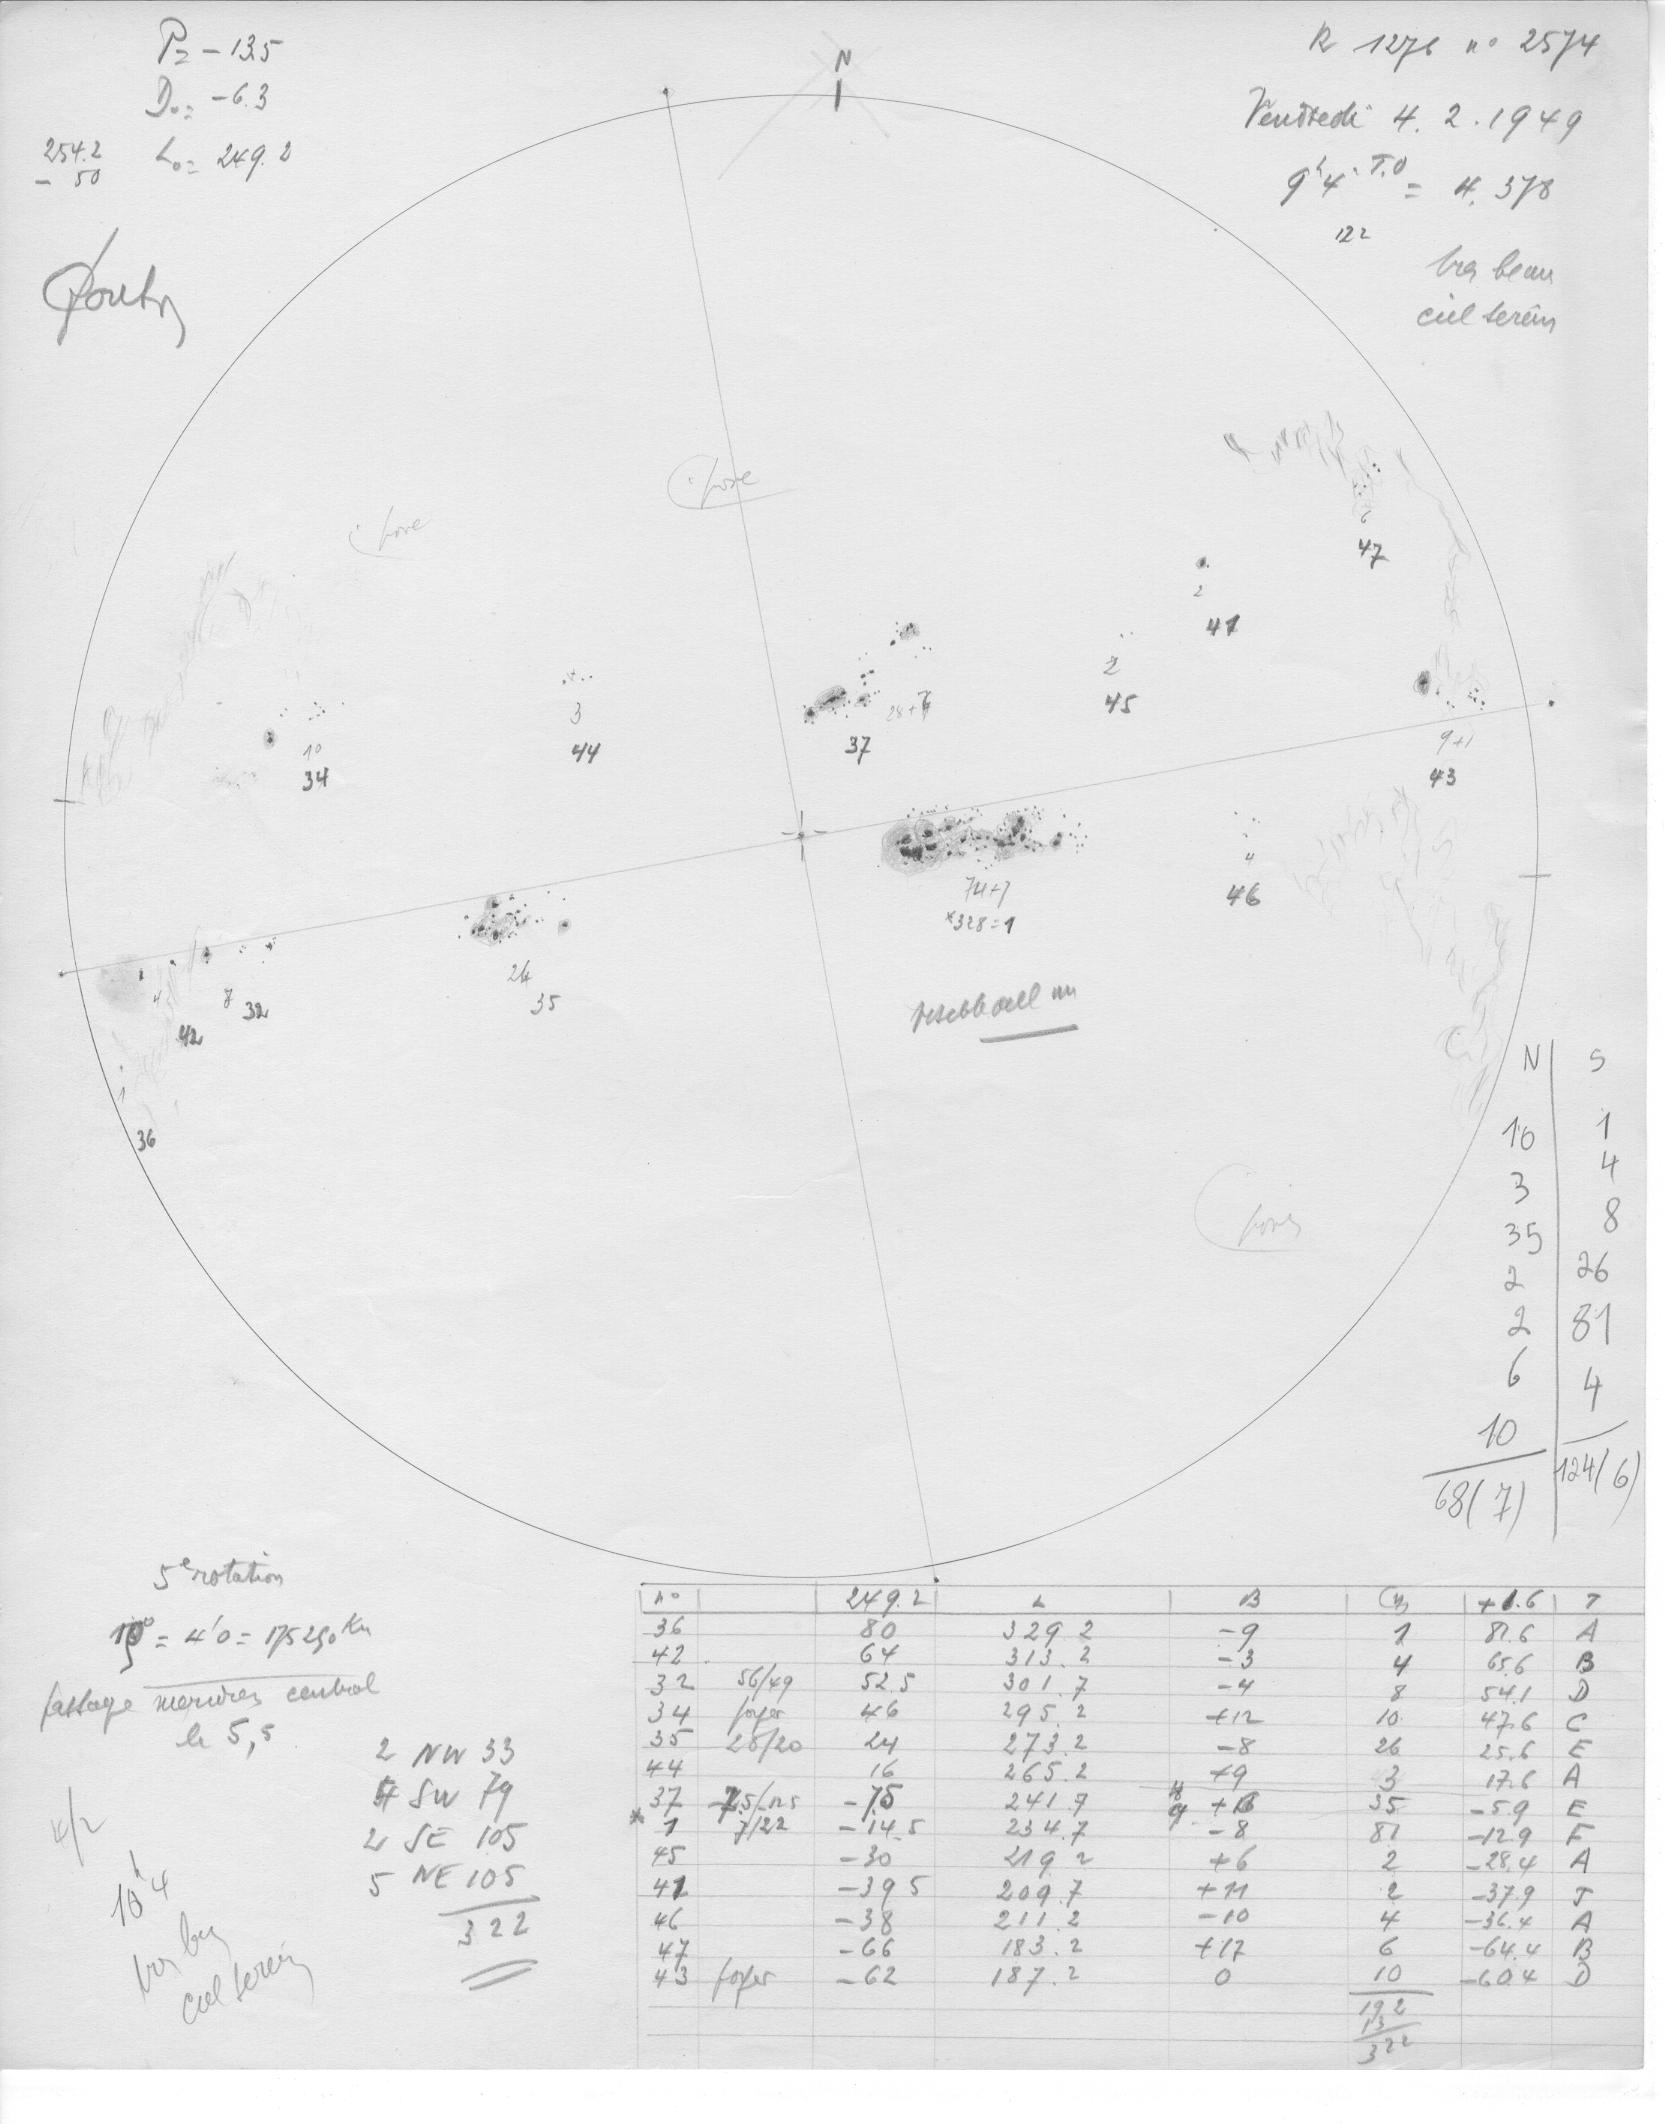 P= -13.5
D₀= -6.3
L₀= 249.2
254.2
- 50
N
R 1276 n° 2574
Vendredi 4. 2. 1949
9ʰ4' T.O = 4.378
122
très beau
ciel serein
pore
pore
6
47
2
41
2
45
28+7
37
3
44
10
34
9+1
43
74+7
*328=1
4
46
26
35
8 32
4
42
1
36
pores
N | S
10 | 1
3 | 4
35 | 8
2 | 26
2 | 81
6 | 4
10
68(7) | 124(6)
5e rotation
passage central
le 5,5
2 NW 33
4 SW 79
2 SE 105
5 NE 105
322
4/2
10ʰ4
très beau
ciel serein
n° 249.2 L B +1.6 T
36 80 329.2 -9 1 81.6 A
42 64 313.2 -3 4 65.6 B
32 56/49 52.5 301.7 -4 8 54.1 D
34 foyer 46 295.2 +12 10 47.6 C
35 28/20 24 273.2 -8 26 25.6 E
44 16 265.2 +9 3 17.6 A
37 241.9 35 -5.9 E
* 1 7/22 -14.5 234.7 -8 81 -12.9 F
45 -30 219.2 +6 2 -28.4 A
41 -39.5 209.7 +11 2 -37.9 J
46 -38 211.2 -10 4 -36.4 A
47 -66 183.2 +17 6 -64.4 B
43 foyer -62 187.2 0 10 -60.4 D
192
13
322